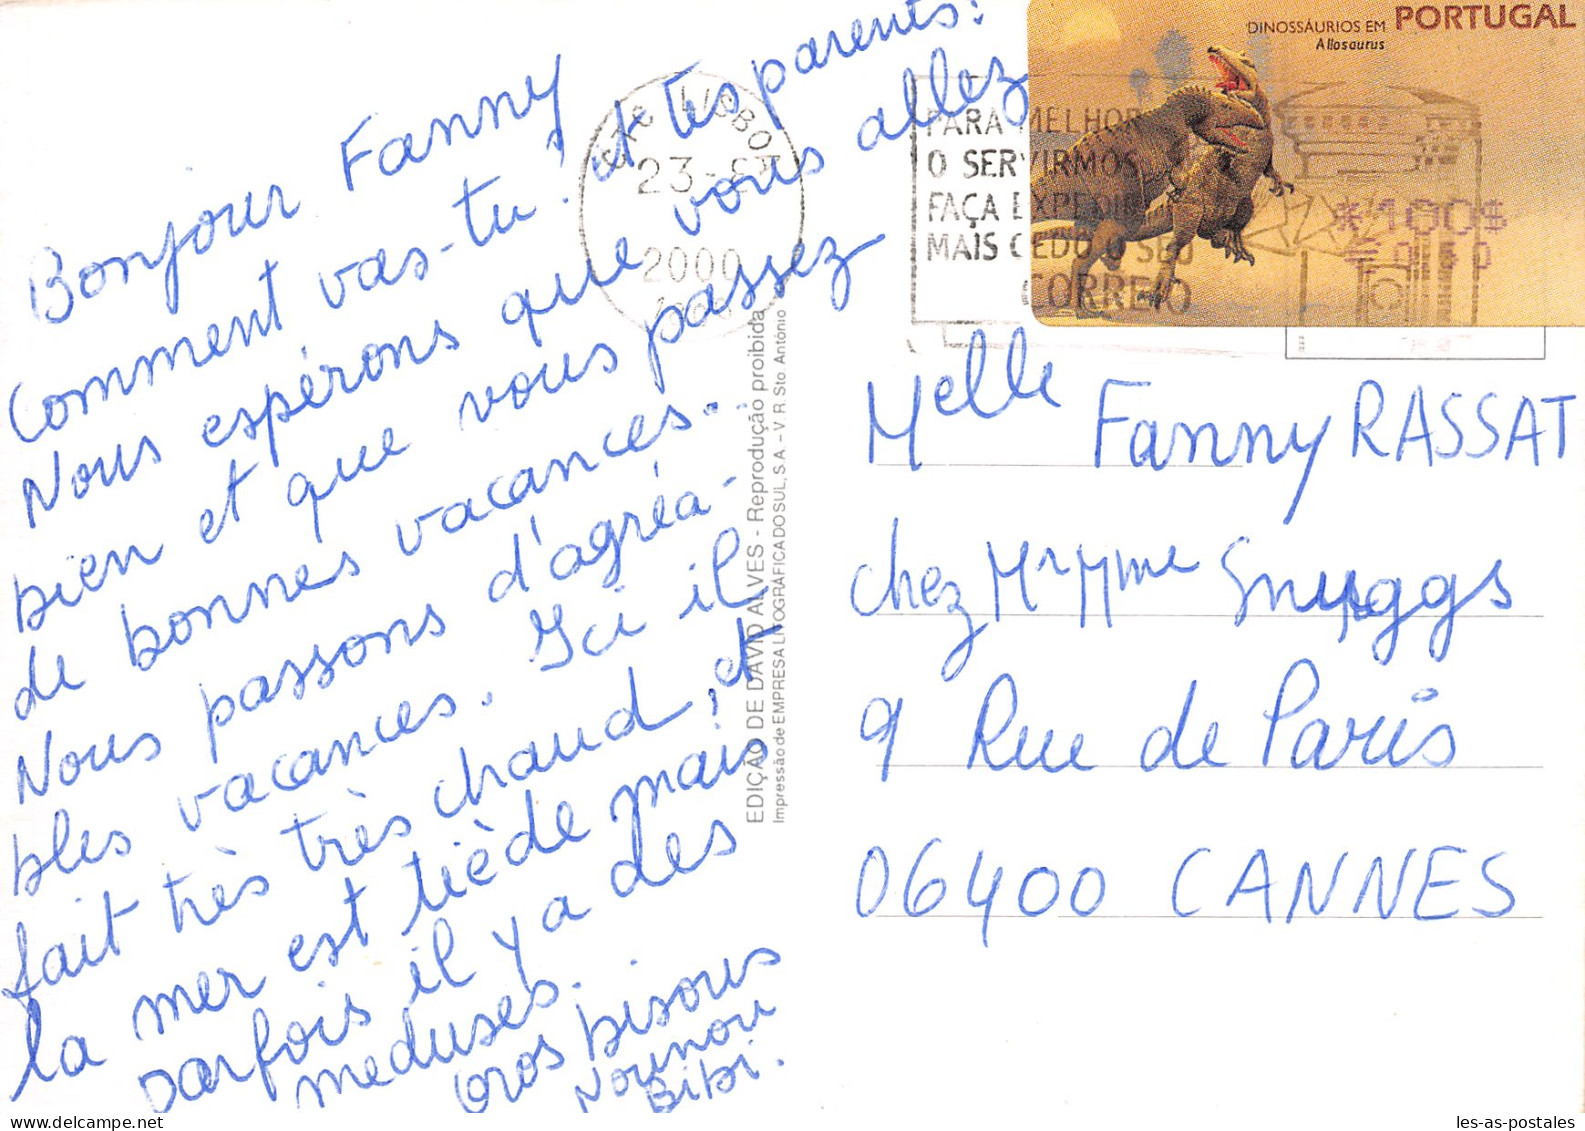 Bonjour Fanny
Comment vas-tu? et tes parents?
Nous espérons que vous allez
bien et que vous passez
de bonnes vacances...
Nous passons d'agréa-
bles vacances. Ici il
fait très très chaud, et
la mer est tiède mais
parfois il y a des
meduses.
Gros bisous
Nounou
Bibi.
EDIÇÃO DE DAVID ALVES - Reprodução proibida
Impressão de EMPRESA LITOGRÁFICA DO SUL, S.A. - V. R. Sto António
LISBOA
23-
2000
PARA MELHOR
O SERVIRMOS
FAÇA EXPEDIR
MAIS CEDO O SEU
CORREIO
DINOSSÁURIOS EM PORTUGAL
Allosaurus
*100$
Melle Fanny RASSAT
chez Mr Mme Snuggs
9 Rue de Paris
06400 CANNES
les-as-postales
© delcampe.net